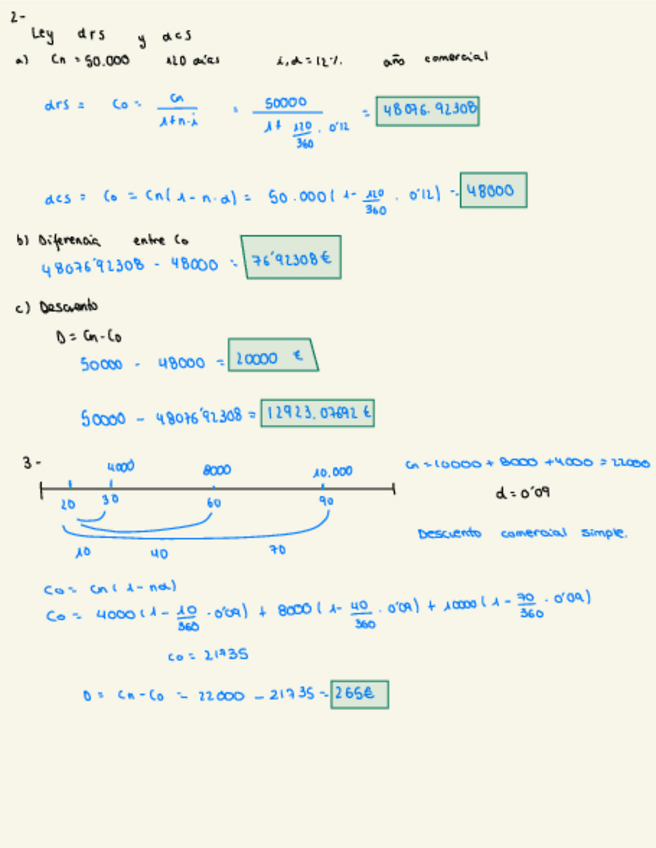 2-
Ley drs y dcs
a) Cn = 50.000 120 días i,d = 12% año comercial
drs = Co = Cn / 1+n·i = 50000 / 1+ 120/360 · 0'12 = 48076.92308
dcs = Co = Cn(1-n·d) = 50.000(1- 120/360 · 0'12) = 48000
b) Diferencia entre Co
48076'92308 - 48000 = 76'92308€
c) Descuento
D = Cn-Co
50000 - 48000 = 20000 €
50000 - 48076'92308 = 12923.07692 €
3-
4000 8000 10.000
20 30 60 90
10 40 70
Cn = 10000 + 8000 + 4000 = 22000
d = 0'09
Descuento comercial simple.
Co = Cn(1-nd)
Co = 4000(1- 10/360 · 0'09) + 8000(1- 40/360 · 0'09) + 10000(1- 70/360 · 0'09)
Co = 21735
D = Cn-Co = 22000 - 21735 = 265€